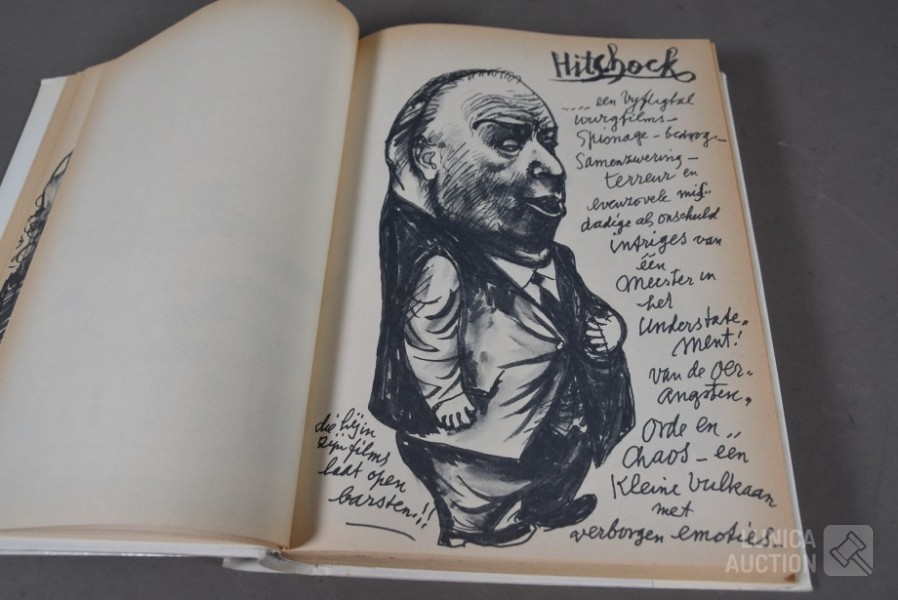 Hitchock
.... een vyftigtal
wurgfilms -
Spionage - bedrog -
Samenzwering -
terreur en
evenzovele mis-
dadige als onschuld
intriges van
één
Meester in
het
Understate-
ment!
van de oer-
angsten,
Orde en
Chaos - een
Kleine Vulkaan
met
verborgen emoties..
die hij in
zijn films
laat open
barsten!!
LUNICA
AUCTION